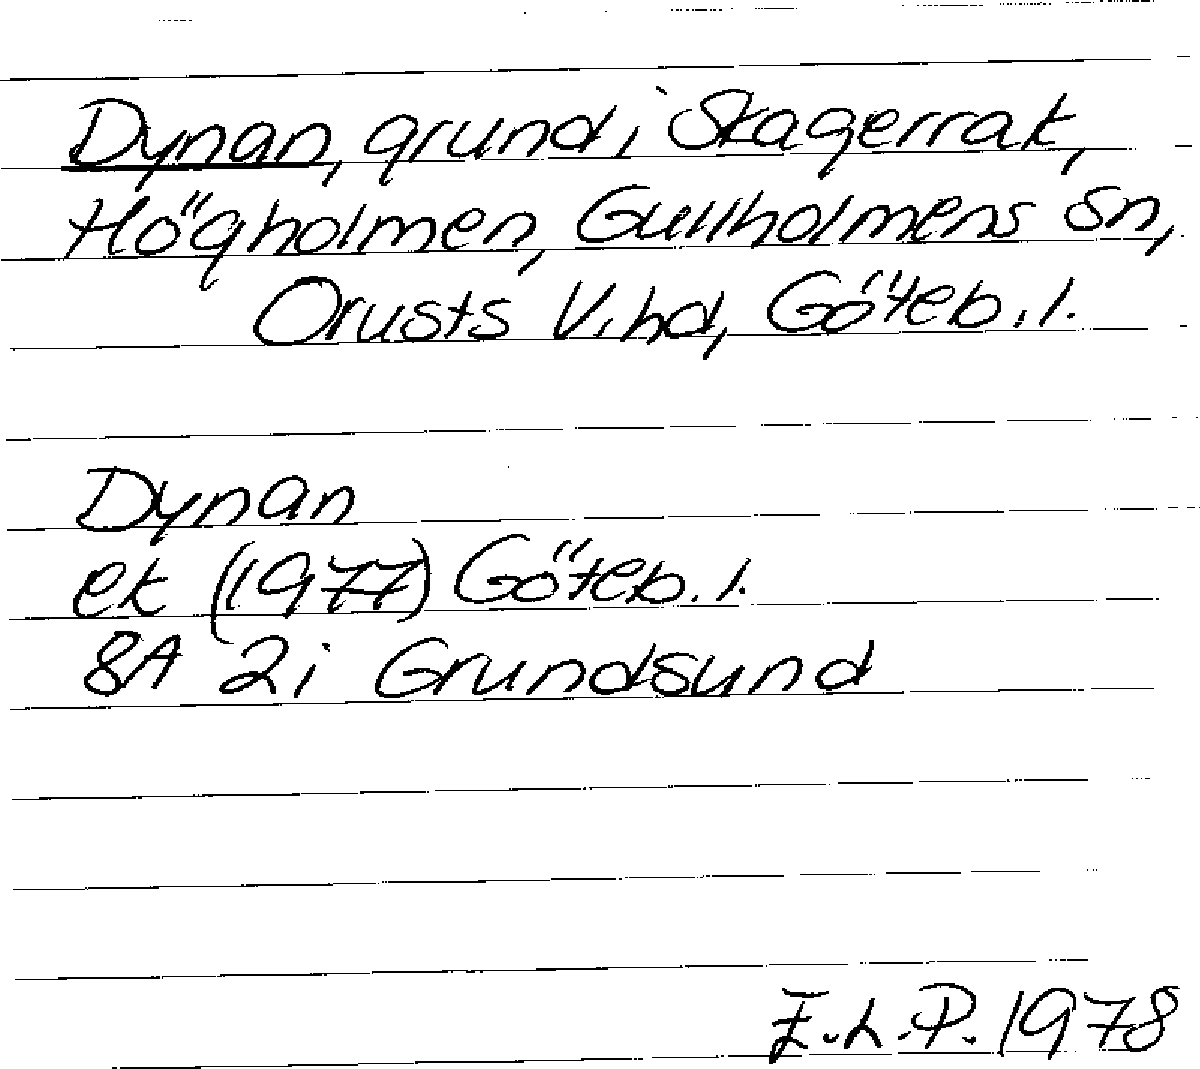 Dynan, grund i Skagerrak,
Högholmen, Gullholmens sn,
Orusts V. hd, Göteb. l.
Dynan
ek (1977) Göteb. l.
8A 2i Grundsund
E.L.P. 1978